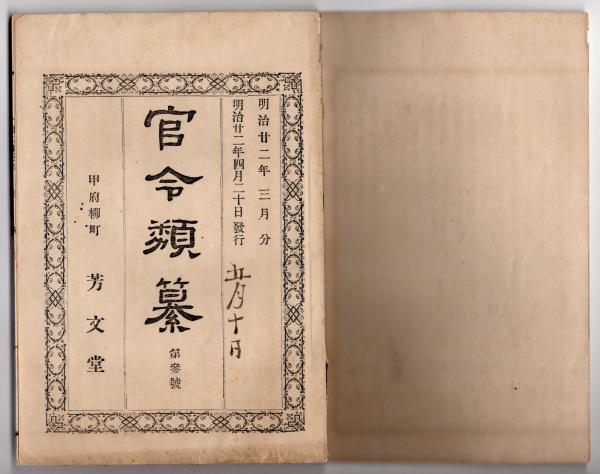 明治廿二年三月分
明治廿二年四月二十日發行
五月十日
官令類纂
第參號
甲府柳町
芳文堂